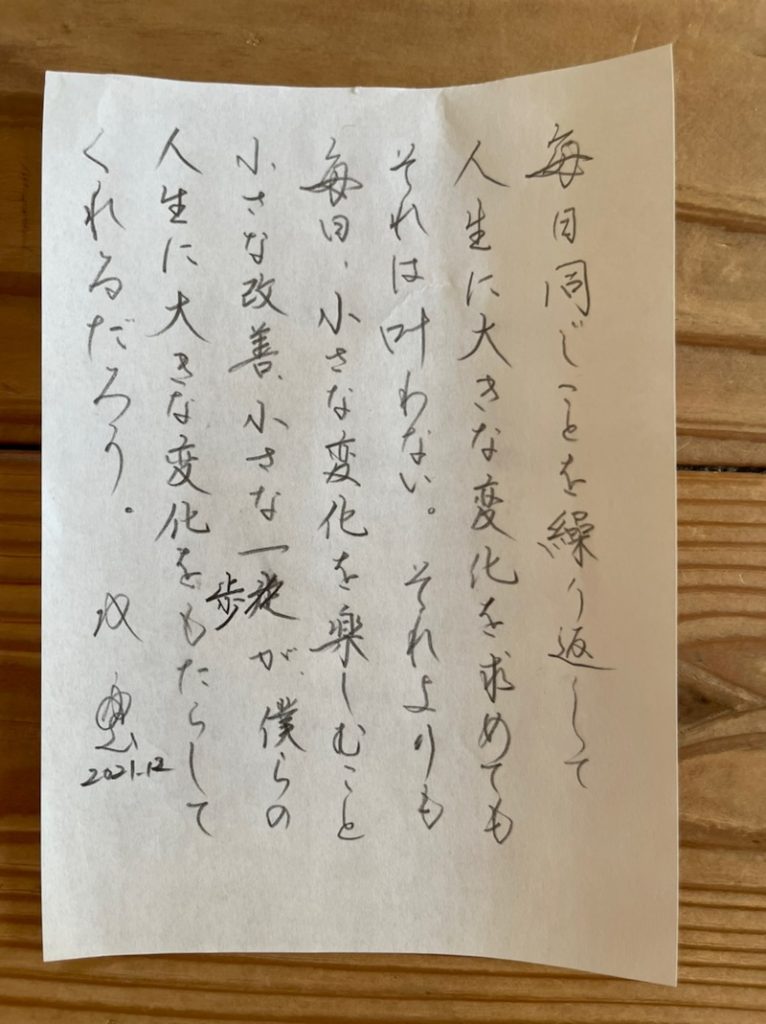 毎日同じことを繰り返して
人生に大きな変化を求めても
それは叶わない。それよりも
毎日、小さな変化を楽しむこと
小さな改善、小さな一歩が、僕らの
人生に大きな変化をもたらして
くれるだろう。
2021.12